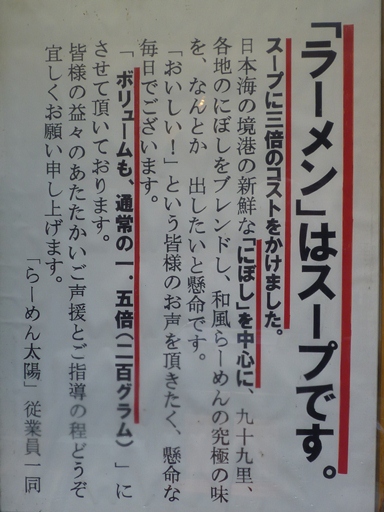 「ラーメン」はスープです。
スープに三倍のコストをかけました。
日本海の境港の新鮮な「にぼし」を中心に、九十九里、
各地のにぼしをブレンドし、和風らーめんの究極の味
を、なんとか 出したいと懸命です。
「おいしい!」という皆様のお声を頂きたく、懸命な
毎日でございます。
「ボリュームも、通常の一.五倍(二百グラム)」に
させて頂いております。
皆様の益々のあたたかいご声援とご指導の程どうぞ
宜しくお願い申し上げます。
「らーめん太陽」従業員一同